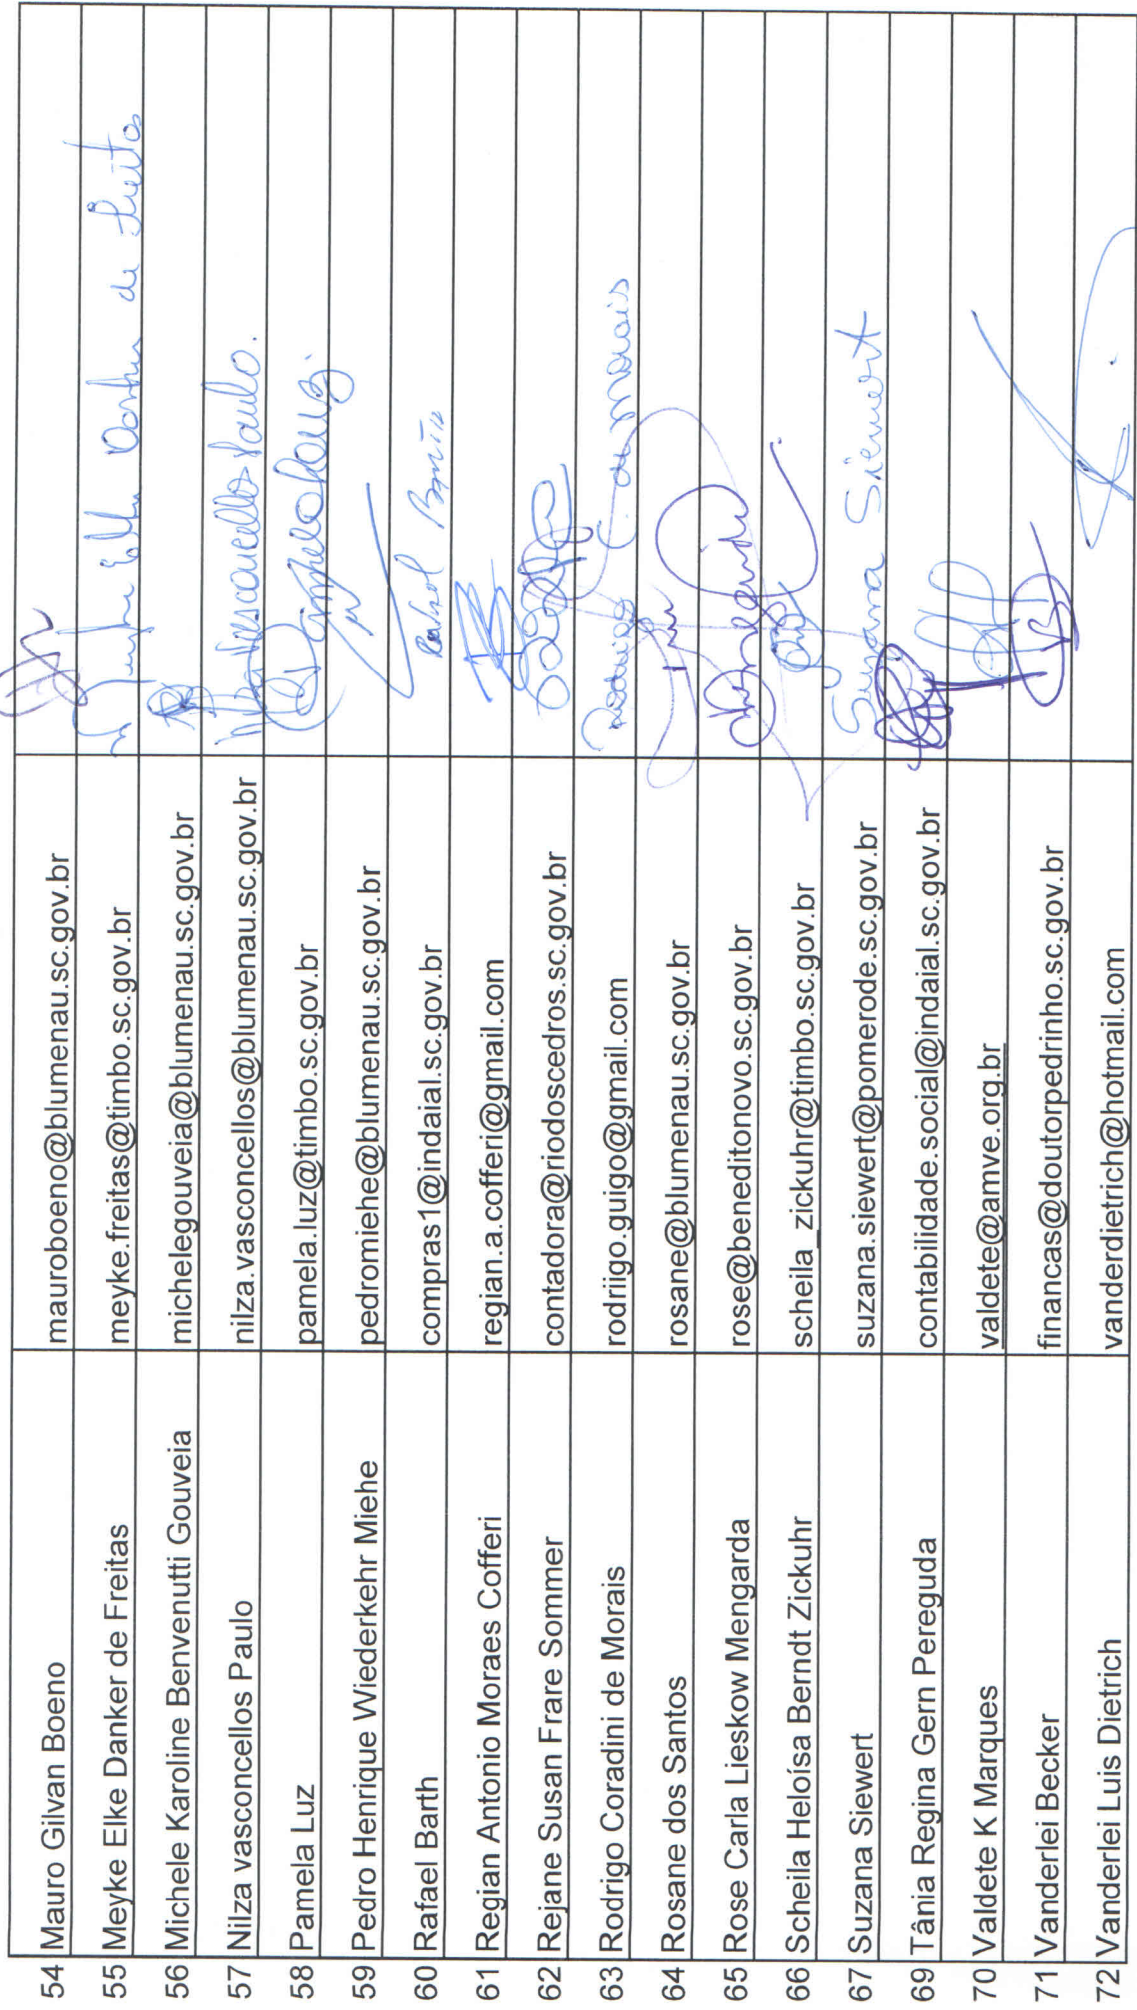 54 Mauro Gilvan Boeno mauroboeno@blumenau.sc.gov.br
55 Meyke Elke Danker de Freitas meyke.freitas@timbo.sc.gov.br
56 Michele Karoline Benvenutti Gouveia michelegouveia@blumenau.sc.gov.br
57 Nilza vasconcellos Paulo nilza.vasconcellos@blumenau.sc.gov.br Vasconcellos Paulo.
58 Pamela Luz pamela.luz@timbo.sc.gov.br
59 Pedro Henrique Wiederkehr Miehe pedromiehe@blumenau.sc.gov.br
60 Rafael Barth compras1@indaial.sc.gov.br
61 Regian Antonio Moraes Cofferi regian.a.cofferi@gmail.com
62 Rejane Susan Frare Sommer contadora@riodoscedros.sc.gov.br
63 Rodrigo Coradini de Morais rodriigo.guigo@gmail.com Rodrigo C. de Morais
64 Rosane dos Santos rosane@blumenau.sc.gov.br
65 Rose Carla Lieskow Mengarda rose@beneditonovo.sc.gov.br
66 Scheila Heloísa Berndt Zickuhr scheila_zickuhr@timbo.sc.gov.br
67 Suzana Siewert suzana.siewert@pomerode.sc.gov.br Suzana Siewert
69 Tânia Regina Gern Pereguda contabilidade.social@indaial.sc.gov.br
70 Valdete K Marques valdete@amve.org.br
71 Vanderlei Becker financas@doutorpedrinho.sc.gov.br
72 Vanderlei Luis Dietrich vanderdietrich@hotmail.com